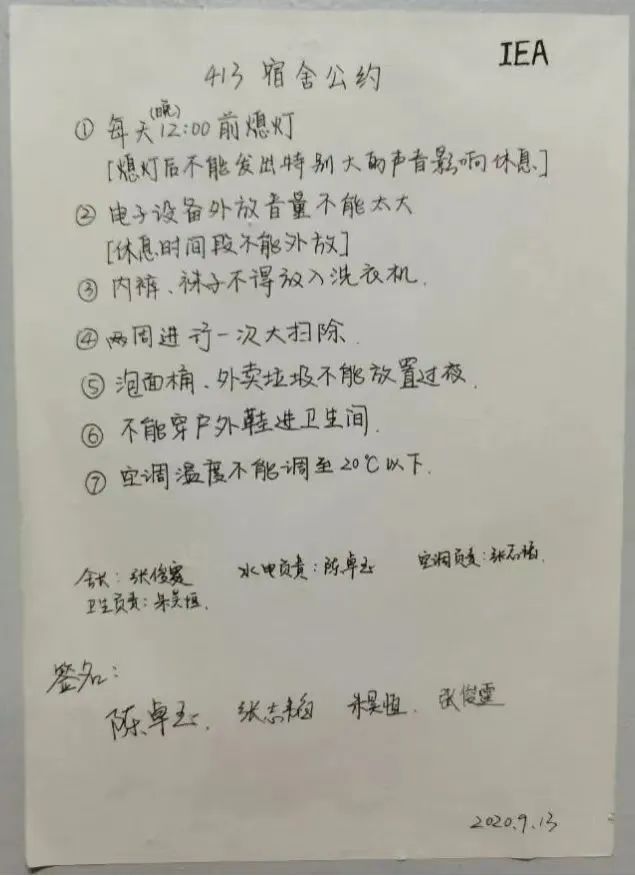 IEA
413 宿舍公约
① 每天(晚)12:00前熄灯
[熄灯后不能发出特别大的声音影响休息]
② 电子设备外放音量不能太大
[休息时间段不能外放]
③ 内裤、袜子不得放入洗衣机.
④ 两周进行一次大扫除.
⑤ 泡面桶、外卖垃圾不能放置过夜.
⑥ 不能穿户外鞋进卫生间.
⑦ 空调温度不能调至20℃以下.
舍长:张俊 水电负责:陈卓 空调负责:张志
卫生负责:朱昊恒.
签名:
陈卓 张志 朱昊恒. 张俊
2020.9.13